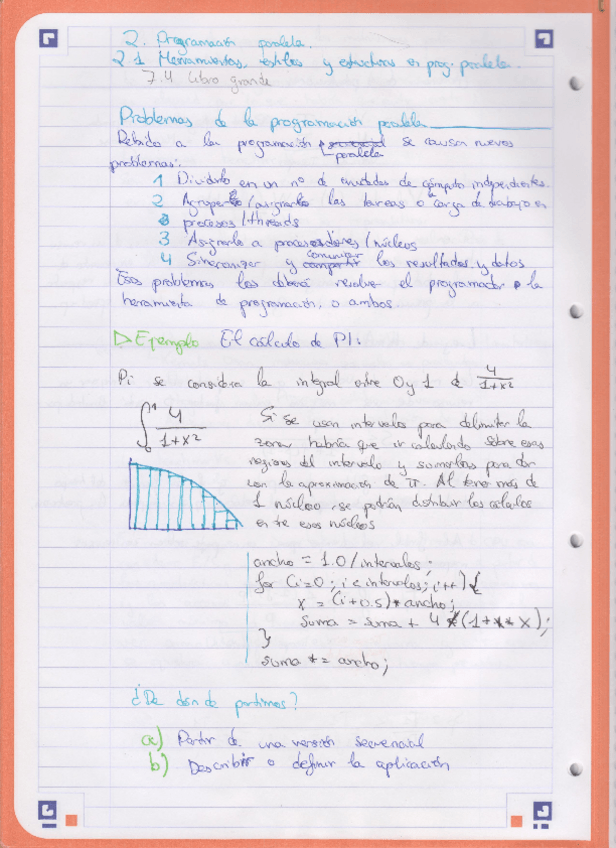 2. Programación paralela.
2.1 Herramientas, estilos y estructuras en prog. paralela.
7.4 Libro grande
Problemas de la programación paralela
Debido a la programación paralela se causan nuevos
problemas:
1 Dividirlo en un nº de unidades de cómputo independientes.
2 Agruparlo/asignarlo las tareas o la carga de trabajo en
procesos/threads
3 Asignarlo a procesadores/núcleos
4 Sincronizar y comunicar los resultados y datos
Esos problemas los deberá resolver el programador o la
herramienta de programación, o ambos.
▷ Ejemplo El cálculo de PI:
Pi se considera la integral entre 0 y 1 de 4/(1+x²)
∫₀¹ 4/(1+x²)
Si se usan intervalos para delimitar la
zona, habría que ir calculando sobre esas
regiones del intervalo y sumarlas para dar
con la aproximación de π. Al tener más de
1 núcleo, se podrán distribuir los cálculos
entre esos núcleos
ancho = 1.0/intervalos;
for (i=0; i<intervalos; i++) {
x = (i+0.5)*ancho;
suma = suma + 4/(1+x*x);
}
suma *= ancho;
¿De dónde partimos?
a) Partir de una versión secuencial
b) Describir o definir la aplicación